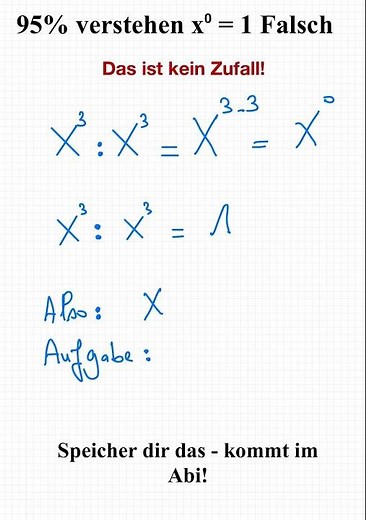 95% verstehen x⁰ = 1 Falsch
Das ist kein Zufall!
X³ : X³ = X³⁻³ = X⁰
X³ : X³ = 1
Also : X
Aufgabe :
Speicher dir das - kommt im
Abi!